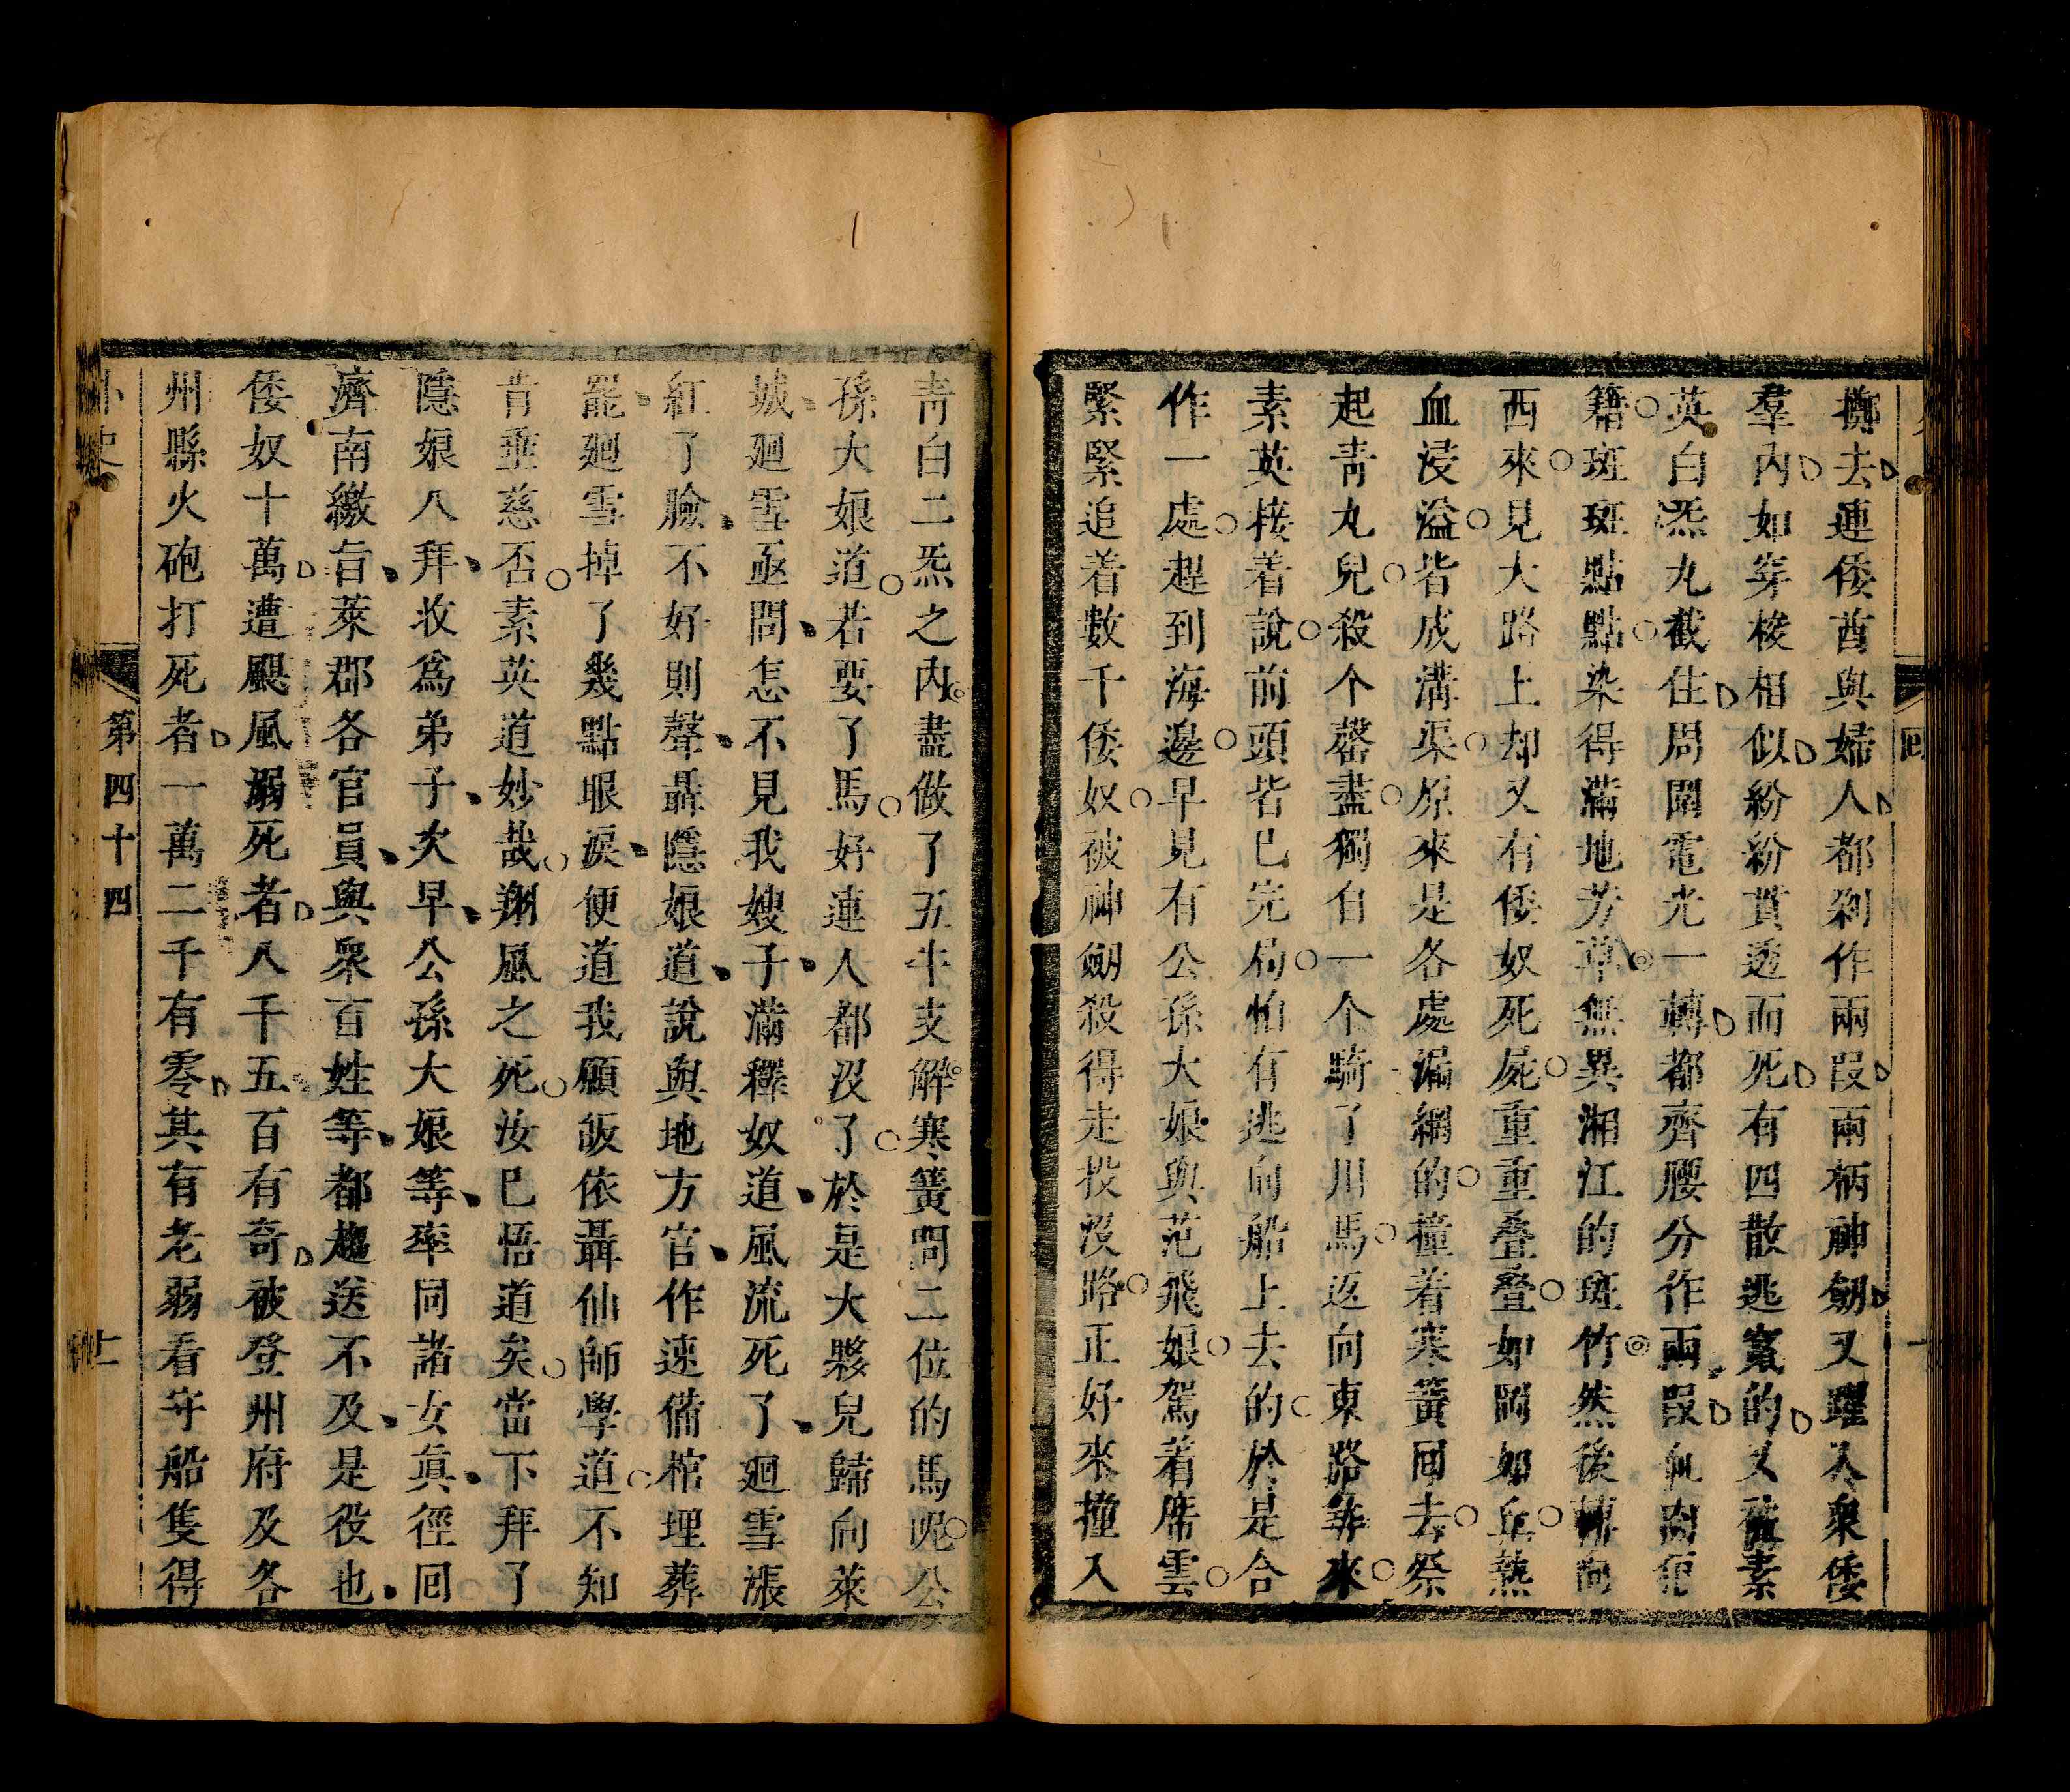 擲去連倭酋與婦人都剁作兩段兩柄神劒又躍入衆倭
羣內如穿梭相似紛紛貫透而死有四散逃竄的又被素
英白炁丸截住周圍電光一轉都齊腰分作兩段血肉狼
籍斑斑點點染得滿地芳草無異湘江的斑竹然後轉向
西來見大路上却又有倭奴死屍重重叠叠如岡如丘熱
血浸溢皆成溝渠原來是各處漏網的撞着寒簧回去祭
起靑丸兒殺个罄盡獨自一个騎了川馬返向東路等來
素英接着說前頭皆已完局怕有逃向船上去的於是合
作一處趕到海邊早見有公孫大娘與范飛娘駕着席雲
緊緊追着數千倭奴被神劒殺得走投沒路正好來撞入
靑白二炁之內盡做了五牛支解寒簧問二位的馬呢公
孫大娘道若要了馬好連人都沒了於是大夥兒歸向萊
城廻雪亟問怎不見我嫂子滿釋奴道風流死了廻雪漲
紅了臉不好則聲聶隱娘道說與地方官作速備棺埋葬
罷廻雪掉了幾點眼淚便道我願皈依聶仙師學道不知
肯垂慈否素英道妙哉翔風之死汝已悟道矣當下拜了
隱娘八拜收爲弟子次早公孫大娘等率同諸女眞徑回
濟南繳旨萊郡各官員與衆百姓等都趨送不及是役也
倭奴十萬遭颶風溺死者八千五百有奇被登州府及各
州縣火砲打死者一萬二千有零其有老弱看守船隻得
外史 第四十四 十二